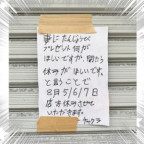 妻にたんじょうび
プレゼント何が
ほしいですか、聞たら
休みがほしいです。
と言うことで
8月5/6/7日
店を休みさせて
いただきます。